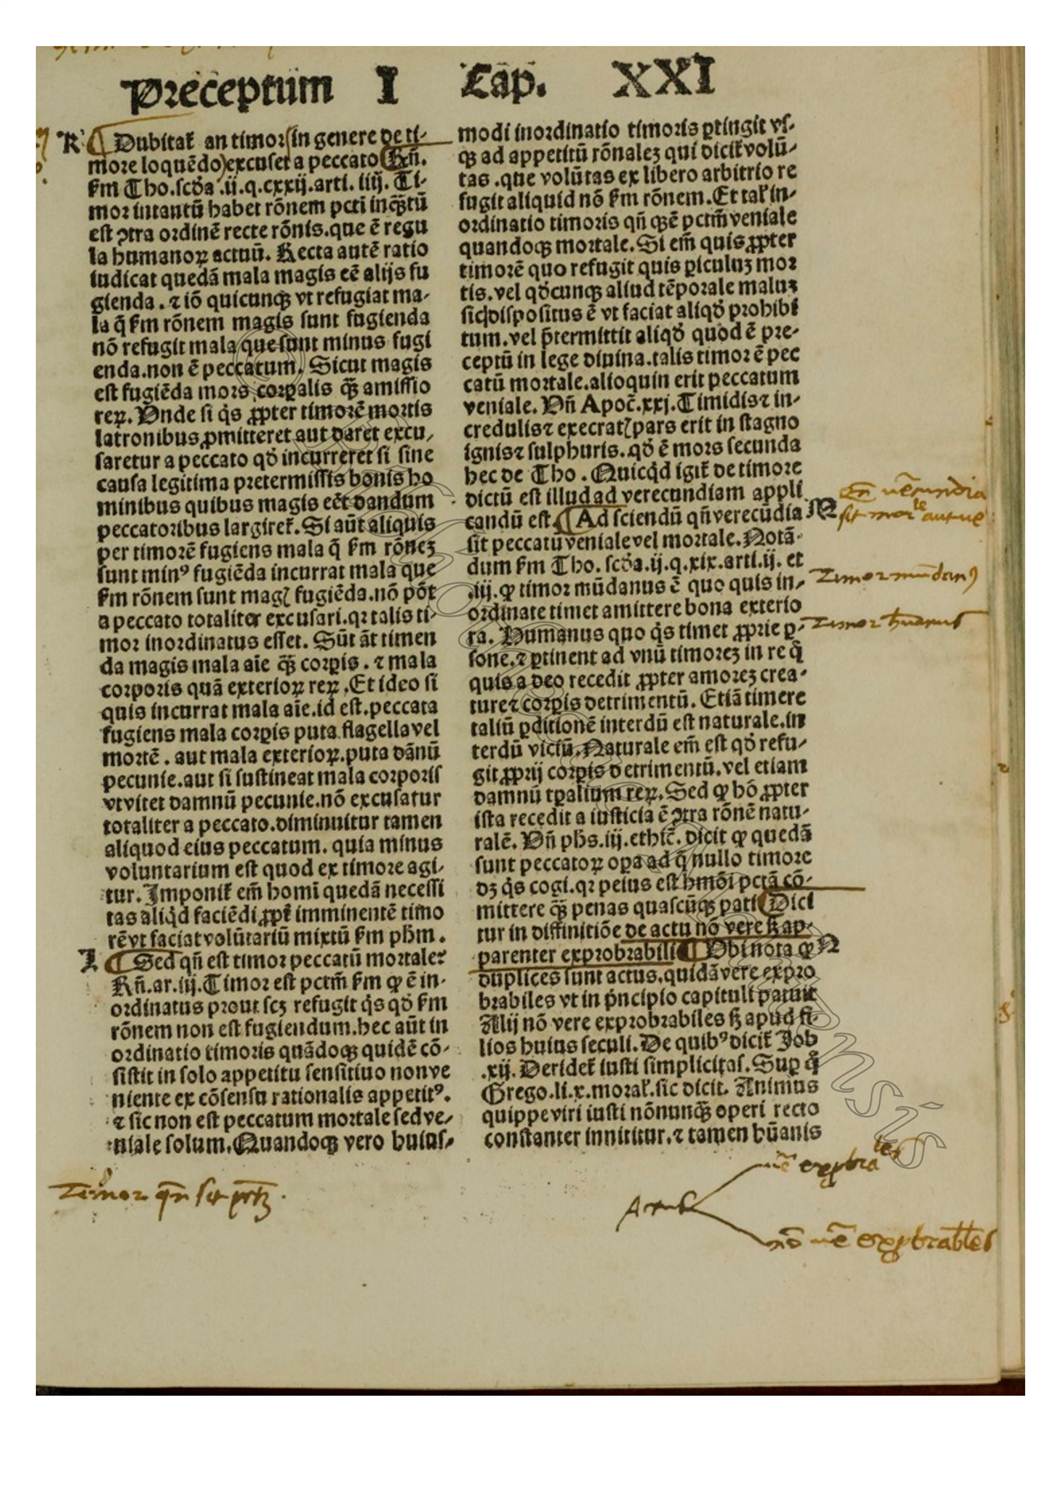 Preceptum I Cap. XXI
K ¶ Dubitat᷑ an timor (in genere de ti-
more loquẽdo) excuset a peccato ¶ Rñ.
ẜm Tho. scďa .ij. q. cxxij. arti. iiij. Ti-
mor intantũ habet rõnem pcti inqꝫtũ
est ꝯtra ordinẽ recte rõnis. que ẽ regu
la humanoꝝ actuũ. Recta autẽ ratio
iudicat quedã mala magis eẽ alijs fu
gienda. ⁊ iõ quicunqꝫ vt refugiat ma-
la q̃ ẜm rõnem magis sunt fugienda
nõ refugit mala que sunt minus fugi
enda. non ẽ peccatum. Sicut magis
est fugiẽda mors corꝑalis q̃ꝫ amissio
reꝝ. Vnde si q̇s ꝓpter timorẽ mortis
latronibus ꝓmitteret aut daret excu-
saretur a peccato qď incurreret si sine
causa legitima pretermissis bonis ho
minibus quibus magis eẽt dandum
peccatoribus largiret᷑. Si aũt aliquis
per timorẽ fugiens mala q̃ ẜm rõneꝫ
sunt minꝰ fugiẽda incurrat mala que
ẜm rõnem sunt magꝭ fugiẽda. nõ põt
a peccato totaliter excusari. qꝛ talis ti-
mor inordinatus esset. Sũt ãt timen
da magis mala aĩe q̃ꝫ corꝑis. ⁊ mala
corporis quã exterioꝝ reꝝ. Et ideo si
quis incurrat mala aĩe. id est. peccata
fugiens mala corꝑis puta flagella vel
mortẽ. aut mala exterioꝝ. puta dãnũ
pecunie. aut si sustineat mala corporis
vt vitet damnũ pecunie. nõ excusatur
totaliter a peccato. diminuitur tamen
aliquod eius peccatum. quia minus
voluntarium est quod ex timore agi-
tur. Imponit᷑ em̃ homĩ quedã necessi
tas aliqď faciẽdi ꝓpt᷑ imminentẽ timo
rẽ vt faciat volũtariũ mixtũ ẜm pḣm.
L ¶ Sed qñ est timor peccatũ mortale?
Rñ. ar. iij. Timor est pctm̃ ẜm ꝙ ẽ in-
ordinatus prout scꝫ refugit q̇s qď ẜm
rõnem non est fugiendum. hec aũt in
ordinatio timoris quãdoqꝫ quidẽ cõ-
sistit in solo appetitu sensitiuo non ve
niente ex cõsensu rationalis appetitꝰ.
⁊ sic non est peccatum mortale sed ve-
niale solum. Quandoqꝫ vero huius-
modi inordinatio timoris ꝑtingit vs-
qꝫ ad appetitũ rõnaleꝫ qui dicit᷑ volũ-
tas. que volũtas ex libero arbitrio re
fugit aliquid nõ ẜm rõnem. Et tal᷑ in-
ordinatio timoris qñ qꝫ ẽ pctm̃ veniale
quandoqꝫ mortale. Si em̃ quis ꝓpter
timorẽ quo refugit quis ꝑiculuꝫ mor
tis. vel qďcunqꝫ aliud tẽporale maluꝫ
sic dispositus ẽ vt faciat aliqď prohibi
tum. vel p̃termittit aliqď quod ẽ pre-
ceptũ in lege diuina. talis timor ẽ pec
catũ mortale. alioquin erit peccatum
veniale. Vñ Apoc̃. xxj. Timidis ⁊ in-
credulis ⁊ execratꝭ pars erit in stagno
ignis ⁊ sulphuris. qď ẽ mors secunda
hec de Tho. Quicq̇d igit᷑ de timore
dictũ est illud ad verecundiam appli
candũ est. ¶ Ad sciendũ qñ verecũdia M
sit peccatũ veniale vel mortale. Notã-
dum ẜm Tho. scďa. ij. q. xix. arti. ij. et
.iij. ꝙ timor mũdanus ẽ quo quis in-
ordinate timet amittere bona exterio
ra. Humanus quo q̇s timet ꝓprie ꝑ-
sone. ⁊ ꝑtinent ad vnũ timoreꝫ in re q̃
quis a deo recedit ꝓpter amoreꝫ crea-
ture ⁊ corꝑis detrimentũ. Etiã timere
taliũ ꝑditionẽ interdũ est naturale. in
terdũ viciũ. Naturale em̃ est qď refu-
git ꝓprij corꝑis detrimentũ. vel etiam
damnũ tꝑalium reꝝ. Sed ꝙ hõ ꝓpter
ista recedit a iusticia ẽ ꝯtra rõnẽ natu-
ralẽ. Vñ pḣs. iij. ethic̃. dicit ꝙ quedã
sunt peccatoꝝ oꝑa ad q̃ nullo timore
dꝫ q̇s cogi. qꝛ peius est hmõi pctã cõ-
mittere q̃ꝫ penas quascũqꝫ pati ¶ Dici
tur in diffinitiõe de actu nõ vere ẜꝫ ap-
parenter exprobrabili ¶ Vbi nota ꝙ N
duplices sunt actus. quidã vere expro
brabiles vt in p̃ncipio capituli patuit
Alij nõ vere exprobrabiles ẜꝫ apud fi-
lios huius seculi. De quibꝰ dicit᷑ Job
.xij. Deridet᷑ iusti simplicitas. Suꝑ q̃
Grego. li. x. moral᷑. sic dicit. Animus
quippe viri iusti nõnunqꝫ operi recto
constanter innititur. ⁊ tamen hũanis
Timor mũdanꝰ
Timor hũanus
Timor qñ sit pctm̃.
Actus